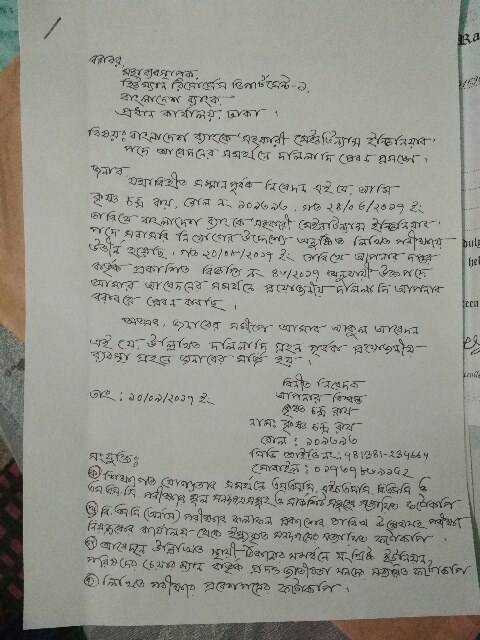 বরাবর,
মহাব্যবস্থাপক,
হিউম্যান রিসোর্সেস ডিপার্টমেন্ট-১,
বাংলাদেশ ব্যাংক,
প্রধান কার্যালয়, ঢাকা।
বিষয়ঃ বাংলাদেশ ব্যাংকে সহকারী মেইনটেন্যান্স ইঞ্জিনিয়ার
পদে আবেদনের সমর্থনে দলিলাদি প্রেরণ প্রসঙ্গে।
জনাব,
যথাবিহীত সম্মানপূর্বক নিবেদন এই যে আমি
কৃষ্ণ চন্দ্র রায়, রোল নং ১০১৬১৬, গত
তারিখে বাংলাদেশ ব্যাংকে সহকারী মেইনটেন্যান্স ইঞ্জিনিয়ার
পদে সরাসরি নিয়োগের উদ্দেশ্যে অনুষ্ঠিত লিখিত পরীক্ষায়
উত্তীর্ণ হয়েছি। গত তারিখে আপনার দপ্তর
কর্তৃক প্রকাশিত বিজ্ঞপ্তি নং অনুযায়ী উক্ত পদে
আমার আবেদনের সমর্থনে প্রয়োজনীয় দলিলাদি আপনার
বরাবরে প্রেরণ করছি।
অতএব, জনাবের সমীপে আমার আকুল আবেদন
এই যে উল্লিখিত দলিলাদি গ্রহণ পূর্বক প্রয়োজনীয়
ব্যবস্থা গ্রহণে জনাবের মর্জি হয়।
বিনীত নিবেদক
তাং: ১০/০৯/২০১৭ ইং
আপনার বিশ্বস্ত
কৃষ্ণ চন্দ্র রায়
নাম: কৃষ্ণ চন্দ্র রায়
রোল: ১০১৬১৬
নং:
মোবাইল:
সংযুক্তি:
শিক্ষাগত যোগ্যতার সমর্থনে এসএসসি, এইচএসসি, বিএসসি ও
এম.এস.সি পরীক্ষার মূল সনদপত্রসমূহ ও সত্যায়িত ফটোকপি
বি.এস.সি (অনার্স) পরীক্ষার ফলাফল প্রকাশের তারিখ উল্লেখসহ পরীক্ষা
নিয়ন্ত্রকের কার্যালয় থেকে ইস্যুকৃত সনদপত্রের সত্যায়িত ফটোকপি
আবেদনে উল্লিখিত স্থায়ী ঠিকানার সমর্থনে সংশ্লিষ্ট ইউনিয়ন
পরিষদের চেয়ারম্যান কর্তৃক প্রদত্ত জাতীয়তা সনদের সত্যায়িত ফটোকপি
লিখিত পরীক্ষার প্রবেশপত্রের ফটোকপি।